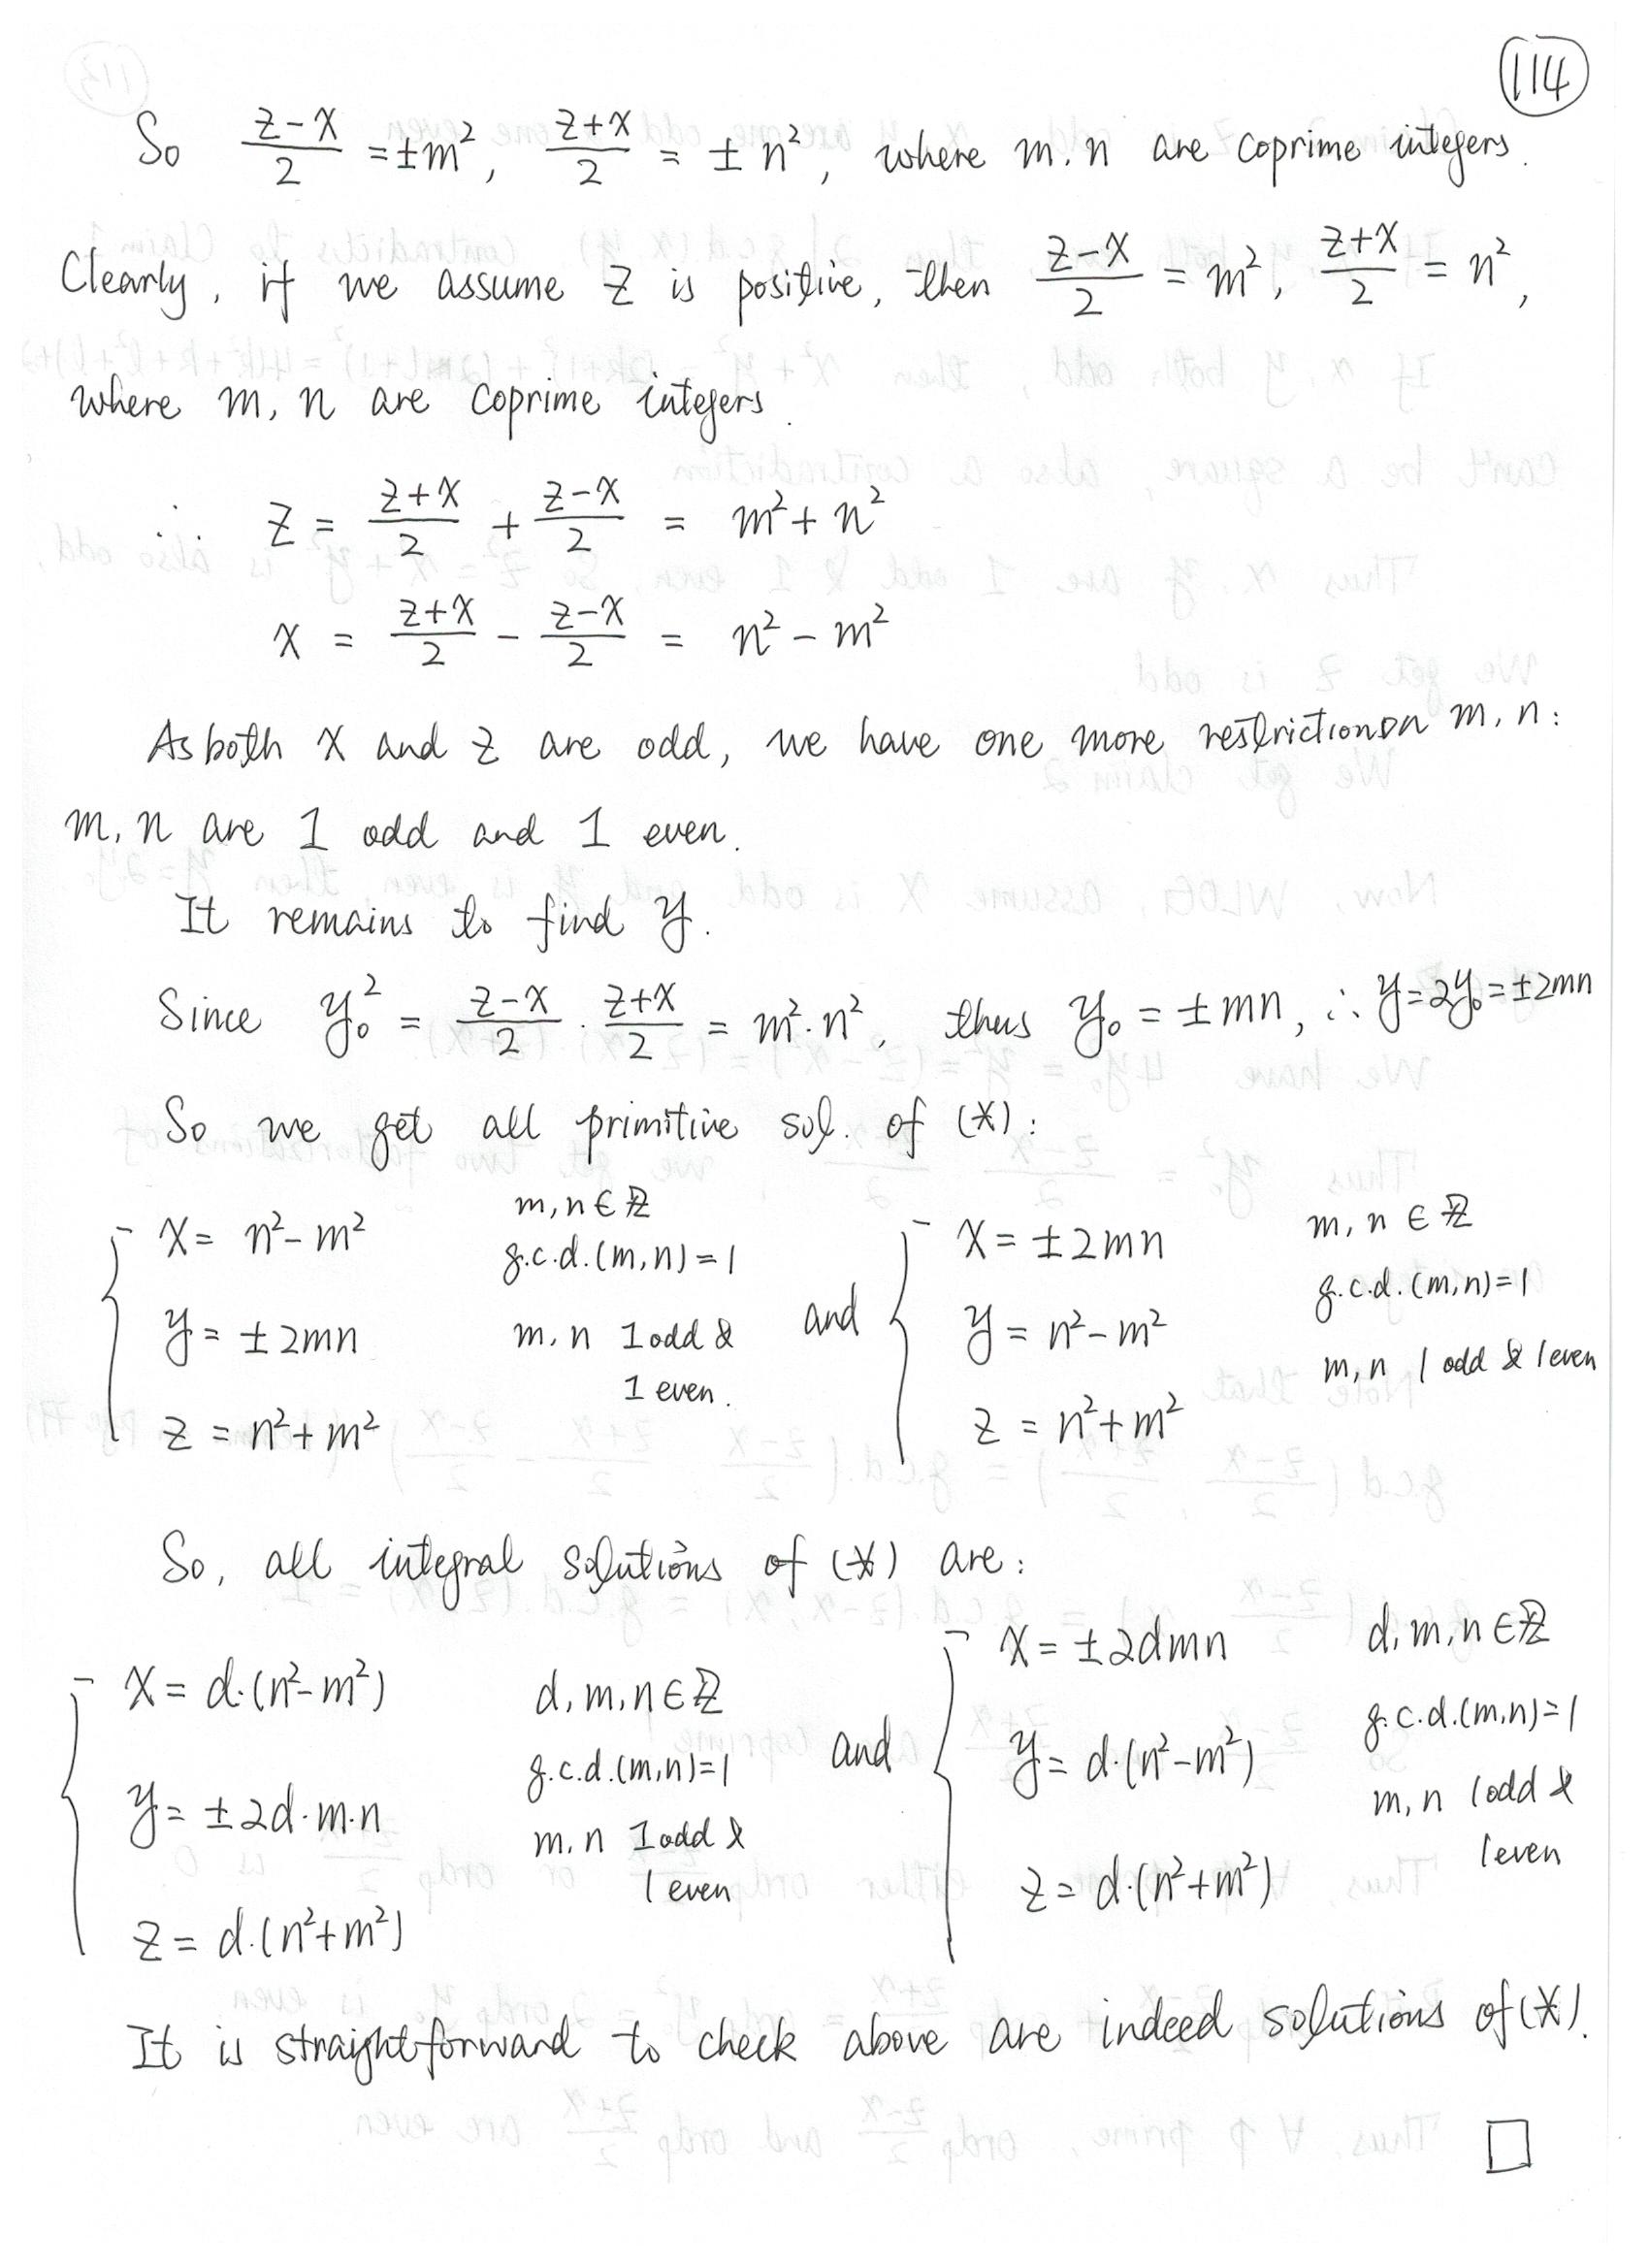 114
So (z-x)/2 = ±m², (z+x)/2 = ± n², where m, n are coprime integers.
Clearly, if we assume z is positive, then (z-x)/2 = m², (z+x)/2 = n²,
where m, n are coprime integers.
∴ z = (z+x)/2 + (z-x)/2 = m² + n²
x = (z+x)/2 - (z-x)/2 = n² - m²
As both x and z are odd, we have one more restriction on m, n:
m, n are 1 odd and 1 even.
It remains to find y.
Since y₀² = (z-x)/2 · (z+x)/2 = m²·n², thus y₀ = ±mn, ∴ y=2y₀=±2mn
So we get all primitive sol. of (*):
x = n² - m² m, n ∈ ℤ x = ±2mn m, n ∈ ℤ
g.c.d.(m,n)=1 g.c.d.(m,n)=1
y = ±2mn m, n 1 odd & and y = n² - m² m, n 1 odd & 1 even
1 even.
z = n² + m² z = n² + m²
So, all integral solutions of (*) are:
x = d·(n²-m²) d, m, n ∈ ℤ x = ±2dmn d, m, n ∈ ℤ
g.c.d.(m,n)=1 and y = d·(n²-m²) g.c.d.(m,n)=1
y = ±2d·m·n m, n 1 odd & m, n 1 odd &
1 even 1 even
z = d·(n²+m²) z = d·(n²+m²)
It is straightforward to check above are indeed solutions of (*).
□